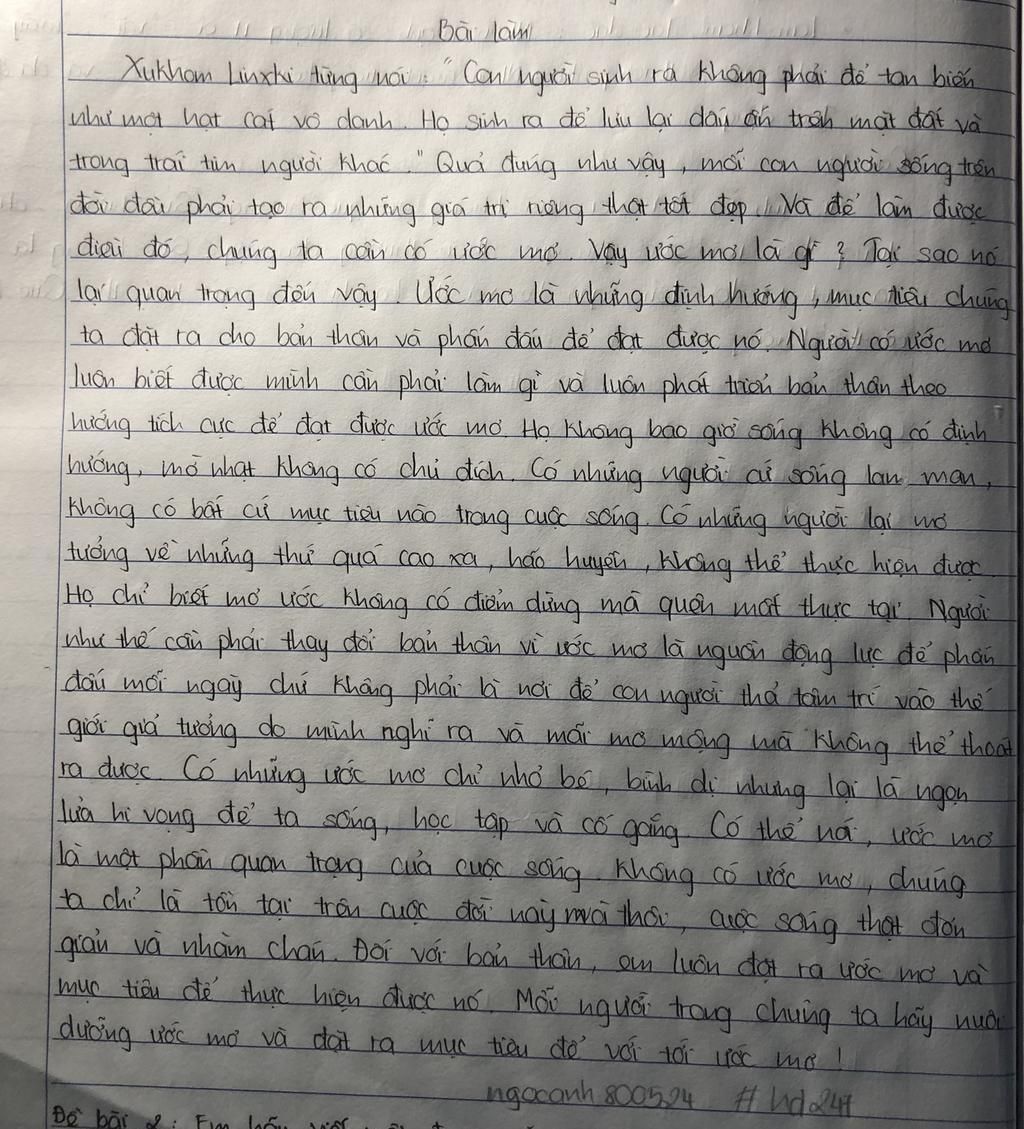 Bài làm
Xukhom Linxki từng nói: "Con người sinh ra không phải để tan biến
như một hạt cát vô danh. Họ sinh ra để lưu lại dấu ấn trên mặt đất và
trong trái tim người khác." Quả đúng như vậy, mỗi con người sống trên
đời đều phải tạo ra những giá trị riêng thật tốt đẹp. Và để làm được
điều đó, chúng ta cần có ước mơ. Vậy ước mơ là gì? Tại sao nó
lại quan trọng đến vậy. Ước mơ là những định hướng, mục tiêu chúng
ta đặt ra cho bản thân và phấn đấu để đạt được nó. Người có ước mơ
luôn biết được mình cần phải làm gì và luôn phát triển bản thân theo
hướng tích cực để đạt được ước mơ. Họ không bao giờ sống không có định
hướng, mờ nhạt không có chủ đích. Có những người cứ sống lan man,
không có bất cứ mục tiêu nào trong cuộc sống. Có những người lại mơ
tưởng về những thứ quá cao xa, hão huyền, không thể thực hiện được.
Họ chỉ biết mơ ước không có điểm dừng mà quên mất thực tại. Người
như thế cần phải thay đổi bản thân vì ước mơ là nguồn động lực để phấn
đấu mỗi ngày chứ không phải là nơi để con người thả tâm trí vào thế
giới giả tưởng do mình nghĩ ra và mãi mơ mộng mà không thể thoát
ra được. Có những ước mơ chỉ nhỏ bé, bình dị nhưng lại là ngọn
lửa hi vọng để ta sống, học tập và cố gắng. Có thể nói, ước mơ
là một phần quan trọng của cuộc sống. Không có ước mơ, chúng
ta chỉ là tồn tại trên cuộc đời này mà thôi, cuộc sống thật đơn
giản và nhàm chán. Đối với bản thân, em luôn đặt ra ước mơ và
mục tiêu để thực hiện được nó. Mỗi người trong chúng ta hãy nuôi
dưỡng ước mơ và đặt ra mục tiêu để với tới ước mơ!
ngocanh800524 #hd247
Đề bài 2: Em hãy viết